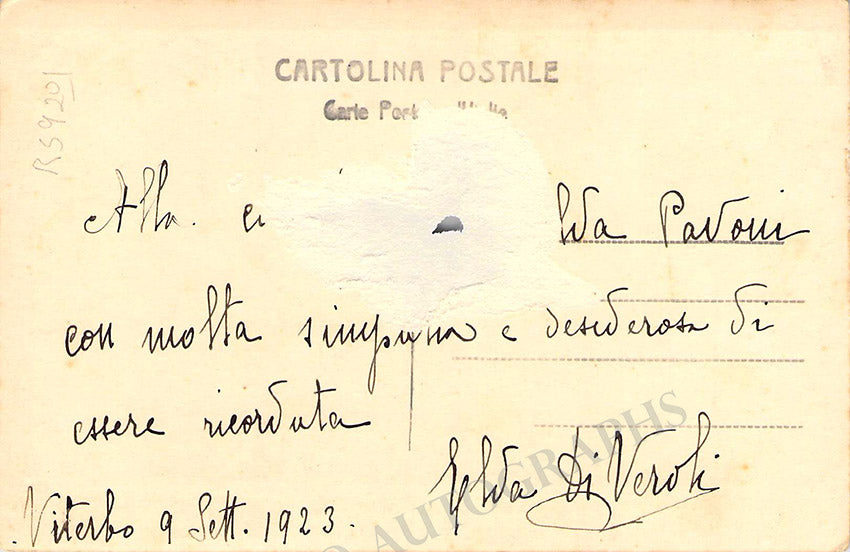 CARTOLINA POSTALE
Carte d'Italie
RS9201
Alla Pavoni
con molta simpatia e desiderosa di
essere ricordata
Elda Di Veroli
Viterbo 9 Sett. 1923.
AUTOGRAPHS